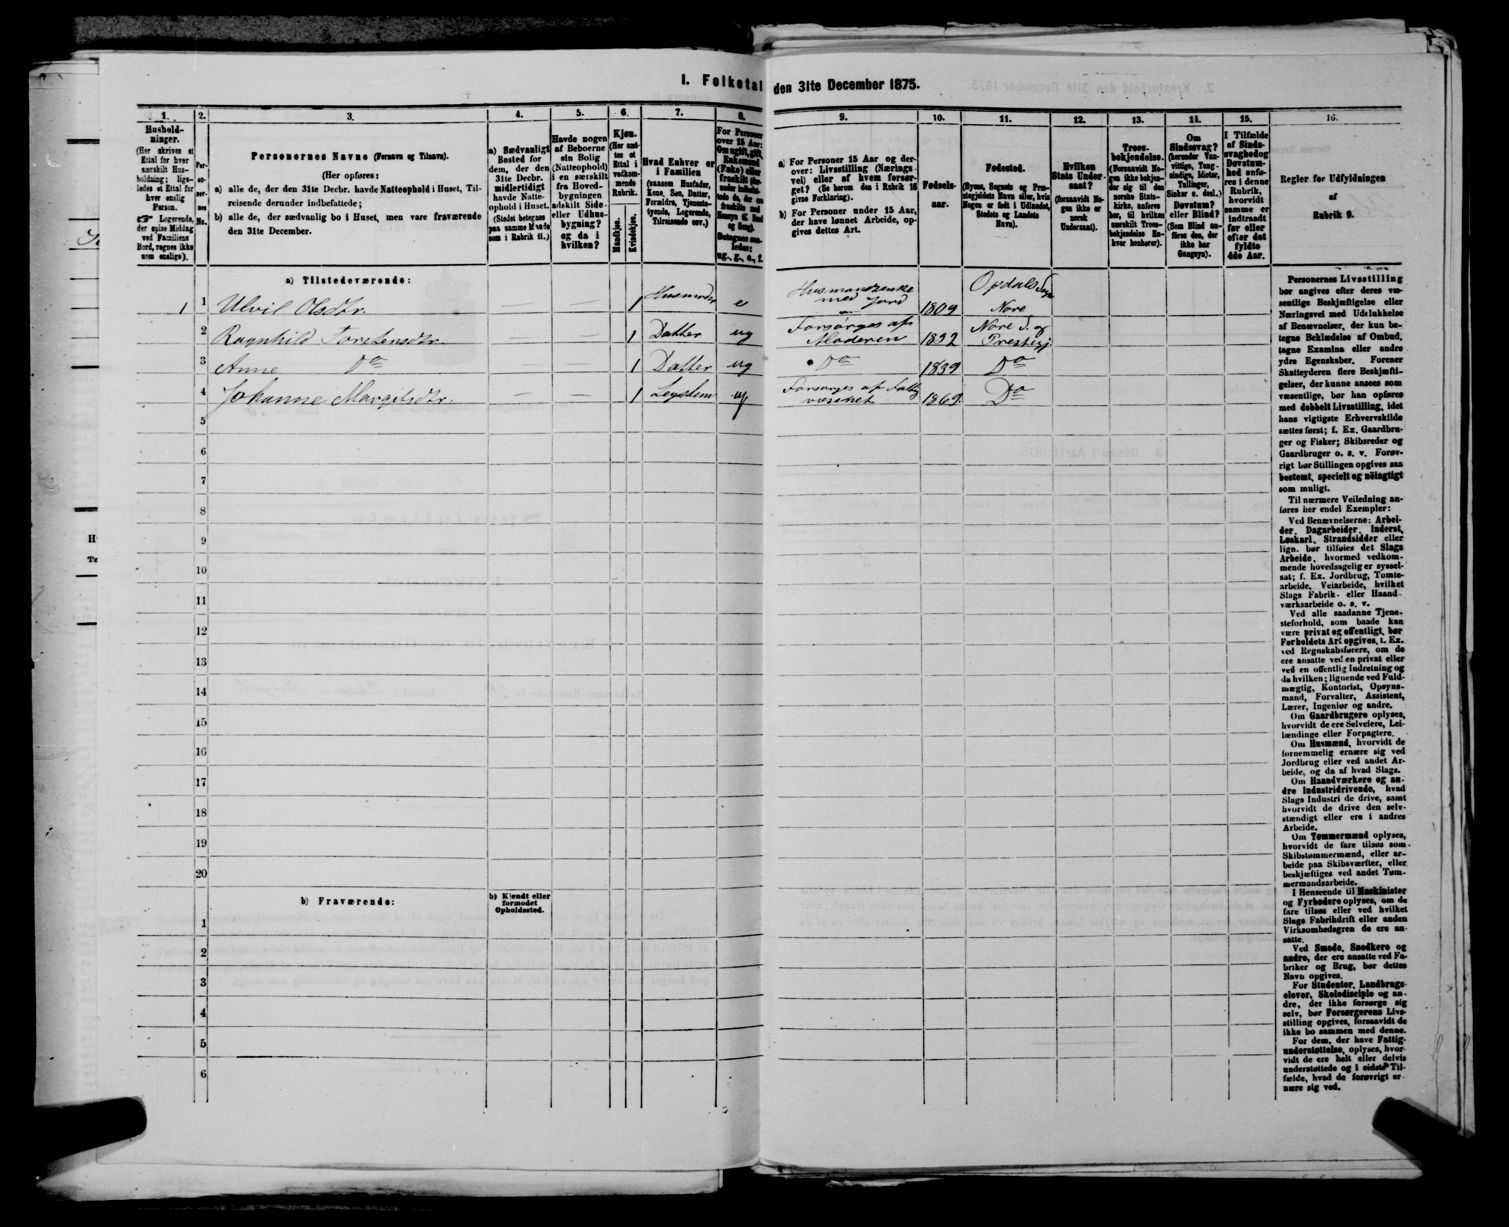 1. Folketal den 31te December 1875.
1.
Hushold-
ninger.
(Her skrives et
Ettal for hver
særskilt Hus-
holdning; lige-
ledes et Ettal for
hver enslig
Person.
☞ Logerende,
der spise Middag
ved Familiens
Bord, regnes ikke
som enslige).
2.
Per-
so-
ner-
nes
No.
3.
Personernes Navne (Fornavn og Tilnavn).
(Her opføres:
a) alle de, der den 31te Decbr. havde Natteophold i Huset, Til-
reisende derunder indbefattede;
b) alle de, der sædvanlig bo i Huset, men vare fraværende
den 31te December.
4.
a) Sædvanligt
Bosted for
dem, der den
31te Decbr.
midlertidigt
havde Natte-
ophold i Huset.
(Stedet betegnes
paa samme Maade
som i Rubrik 11.)
5.
Havde nogen
af Beboerne
sin Bolig
(Natteophold)
i en særskilt
fra Hoved-
bygningen
adskilt Side-
eller Udhus-
bygning?
og da i
hvilken?
6.
Kjøn.
(Her sæt-
tes et
Ettal i
vedkom-
mende
Rubrik.
Mandkjøn.
Kvindekjøn.
7.
Hvad Enhver er
i Familien
(saasom Husfader,
Kone, Søn, Datter,
Forældre, Tjeneste-
tyende, Logerende,
Tilreisende osv.)
8.
For Personer
over 15 Aar:
Om ugift, gift,
Enkemand
(Enke) eller
fraskilt
Betegnes saa-
ledes:
ug., g., e., f.
9.
a) For Personer 15 Aar og der-
over: Livsstilling (Nærings-
vei) eller af hvem forsør-
get? (Se herom den i Rubrik 16
givne Forklaring).
b) For Personer under 15 Aar,
der have lønnet Arbeide, op-
gives dettes Art.
10.
Fødsels-
aar.
11.
Fødested.
(Byens, Sognets og Præ-
stegjeldets Navn eller, hvis
Nogen er født i Udlandet,
Stedets og Landets
Navn).
12.
Hvilken
Stats Under-
saat?
(forsaavidt No-
gen ikke er
norsk
Undersaat).
13.
Troes-
bekjendelse.
(Forsaavidt No-
gen ikke bekjen-
der sig til den
norske Stats-
kirke, anføres
her, til hvilken
særskilt Troes-
bekjendelse En-
hver henhører).
14.
Om
Sindssvag?
(herunder Van-
vittige, Tung-
sindige, Idioter,
Tullinger,
Sinker o. desl.)
Døvstum?
eller Blind?
(Som Blind an-
føres den, der
ikke har
Gangsyn).
15.
I Tilfælde
af Sinds-
svaghed og
Døvstum-
hed anfø-
res i denne
Rubrik,
hvorvidt
samme er
indtraadt
før eller
efter det
fyldte
4de Aar.
16.
Regler for Udfyldningen
af
Rubrik 9.
a) Tilstedeværende:
1 1 Ulvil Olsdtr. — — 1 Husmoder e Husmandsenke med Jord 1809 Opdals Sogn Nore
2 Ragnhild Torstensdtr. — — 1 Datter ug Forsørges af Moderen 1832 Nore S. og Prestegj
3 Anne Do — — 1 Datter ug Do 1839 Do
4 Johanne Margitsdtr. — — 1 Legdslem ug Forsørges af Fattigvæsenet 1869. Do
5
6
7
8
9
10
11
12
13
14
15
16
17
18
19
20
b) Fraværende:
b) Kjendt eller
formodet
Opholdssted.
1
2
3
4
5
6
Personernes Livsstilling
bør angives efter deres væ-
sentlige Beskjæftigelse eller
Næringsvei med Udelukkelse
af Benævnelser, der kun be-
tegne Beklædelse af Ombud,
tagne Examina eller andre
ydre Egenskaber. Forener
Skatteyderen flere Beskjæfti-
gelser, der kunne ansees som
væsentlige, bør han opføres
med dobbelt Livsstilling, idet
hans vigtigste Erhvervskilde
sættes først; f. Ex. Gaardbru-
ger og Fisker; Skibsreder og
Gaardbruger o. s. v. Forøv-
rigt bør Stillingen opgives saa
bestemt, specielt og nöiagtigt
som muligt.
Til nærmere Veiledning an-
føres her endel Exempler:
Ved Benævnelserne: Arbei-
der, Dagarbeider, Inderst,
Løskarl, Strandsidder eller
lign. bør tilføies det Slags
Arbeide, hvormed vedkom-
mende hovedsagelig er syssel-
sat; f. Ex. Jordbrug, Tomte-
arbeide, Veiarbeide, hvilket
Slags Fabrik- eller Haand-
værksarbeide o. s. v.
Ved alle saadanne Tjene-
steforhold, som baade kan
være privat og offentligt, bør
Forholdets Art opgives, t. Ex.
ved Regnskabsførere, om de
ere ansatte ved en privat eller
ved en offentlig Indretning og
da hvilken; lignende ved Fuld-
mægtig, Kontorist, Opsyns-
mand, Forvalter, Assistent,
Lærer, Ingeniør og andre.
Om Gaardbrugere oplyses,
hvorvidt de ere Selveiere, Lei-
lændinge eller Forpagtere.
Om Husmænd, hvorvidt de
fornemmelig ernære sig ved
Jordbrug eller ved andet Ar-
beide, og da af hvad Slags.
Om Haandværkere og an-
dre Industridrivende, hvad
Slags Industri de drive, samt
hvorvidt de drive den selv-
stændigt eller ere i andres
Arbeide.
Om Tømmermænd oplyses,
hvorvidt de fare tilsøs som
Skibstømmermænd, eller ar-
beide paa Skibsværfter, eller
beskjæftiges ved andet Tøm-
mermandsarbeide.
I Henseende til Maskinister
og Fyrbødere oplyses, om de
fare tilsøs eller ved hvilket
Slags Fabrikdrift eller anden
Virksomhedsgren de ere an-
satte.
Ved Smede, Snedkere og
andre, der ere ansatte ved Fa-
briker og Brug, bør dettes
Navn opgives.
For Studenter, Landbrugs-
elever, Skoledisciple og an-
dre, der ikke forsørge sig
selv, bør Forsørgerens Livs-
stilling opgives, forsaavidt de
ikke bo sammen med denne.
For dem, der have Fattig-
understøttelse, oplyses, hvor-
vidt de ere helt eller delvis
understøttede og i sidste Til-
fælde, hvad de forøvrigt er-
nære sig ved.